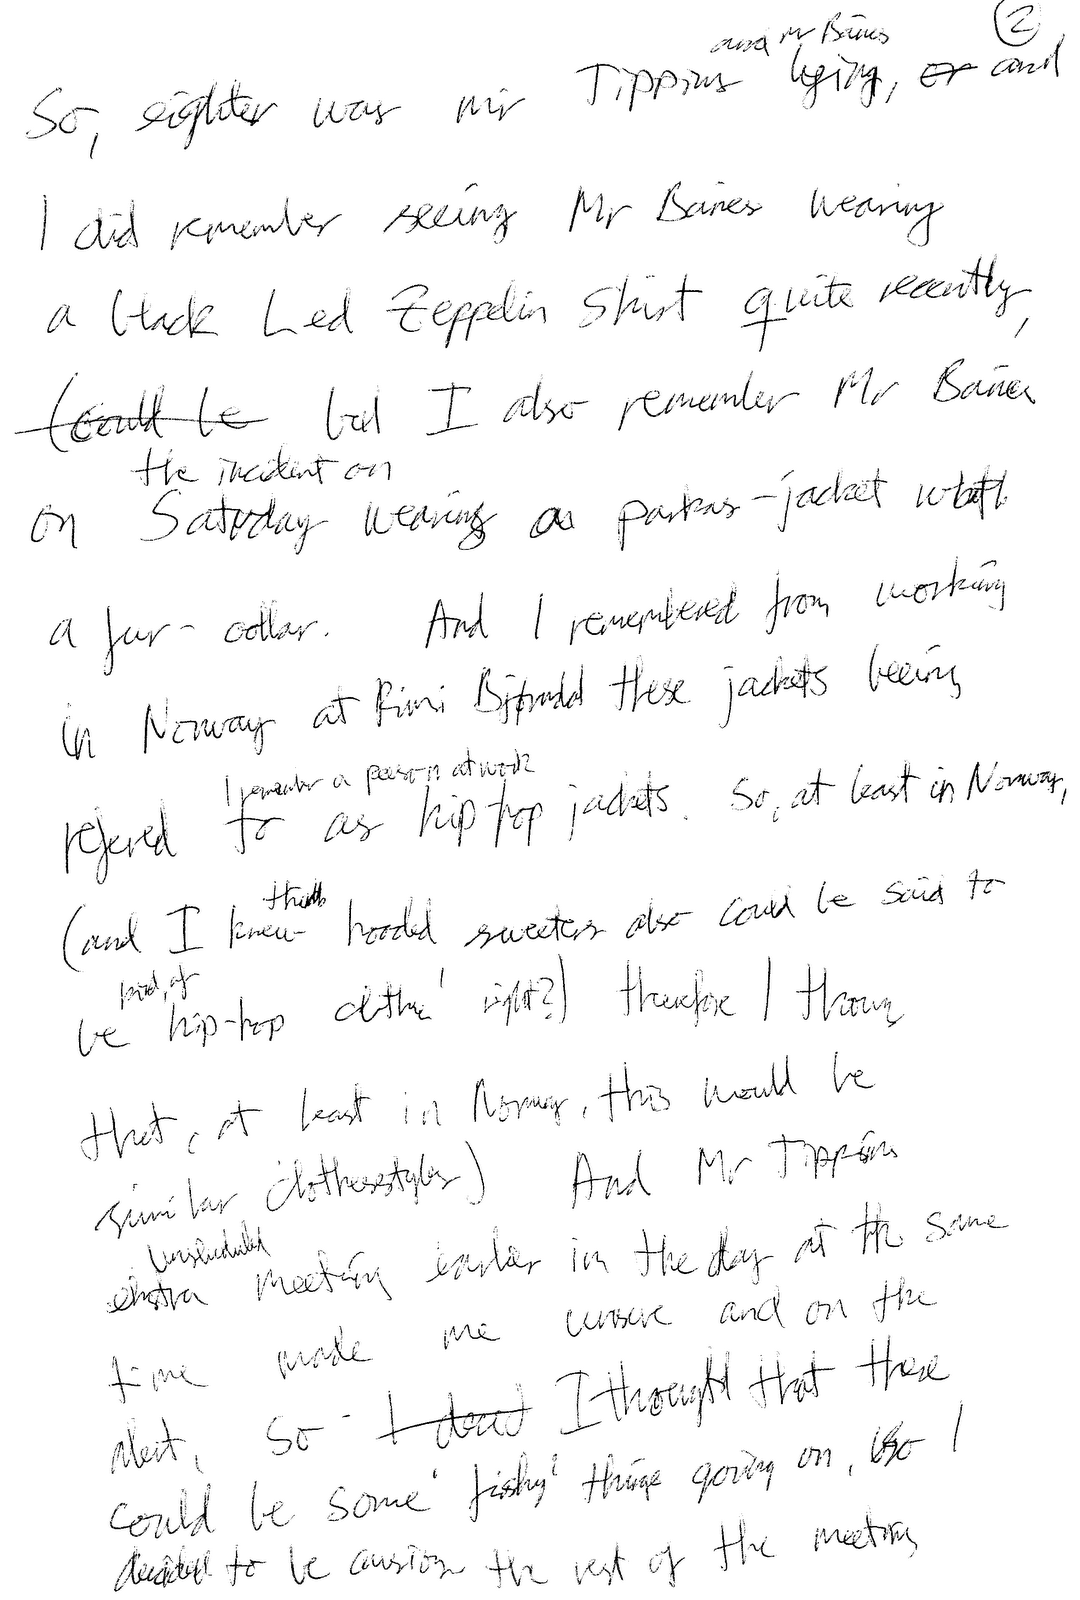 ②
and Mr Baines
So, eighter was mr Tippins lying, or and
I did remember seeing Mr Baines wearing
a black Led Zeppelin Shirt quite recently,
(could be but I also remember Mr Baines
the incident on
on Saturday wearing a parkas-jacket with
a fur-collar. And I remembered from working
in Norway at Rimi Bjørndal these jackets beeing
I remember a person at work
refered to as hip hop jackets. So, at least in Norway,
that
(and I knew hooded sweeters also could be said to
kind, of
be hip-hop clothe' right?) therefore I thoug
that, at least in Norway, this would be
similar clothesestyles) And Mr Tippins
unscheduled
ekstra meeting earlier in the day at the same
time made me unsure and on the
alert, so I thought that there
could be some 'fishy' things going on, so I
decided to be causion the rest of the meeting